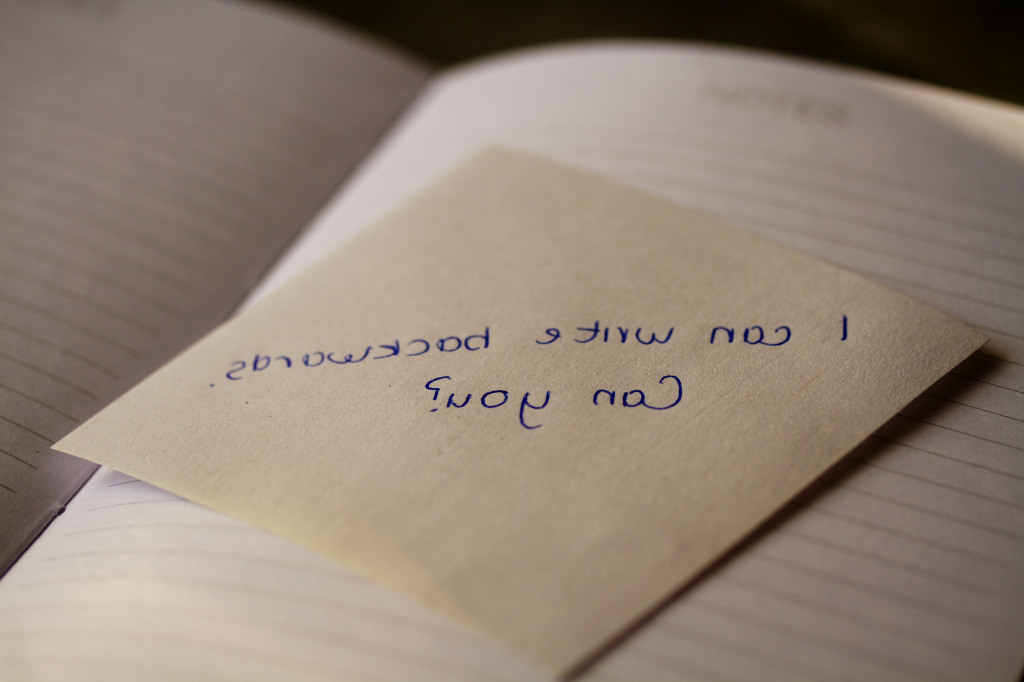 NOTES
I can write backwards.
Can you?